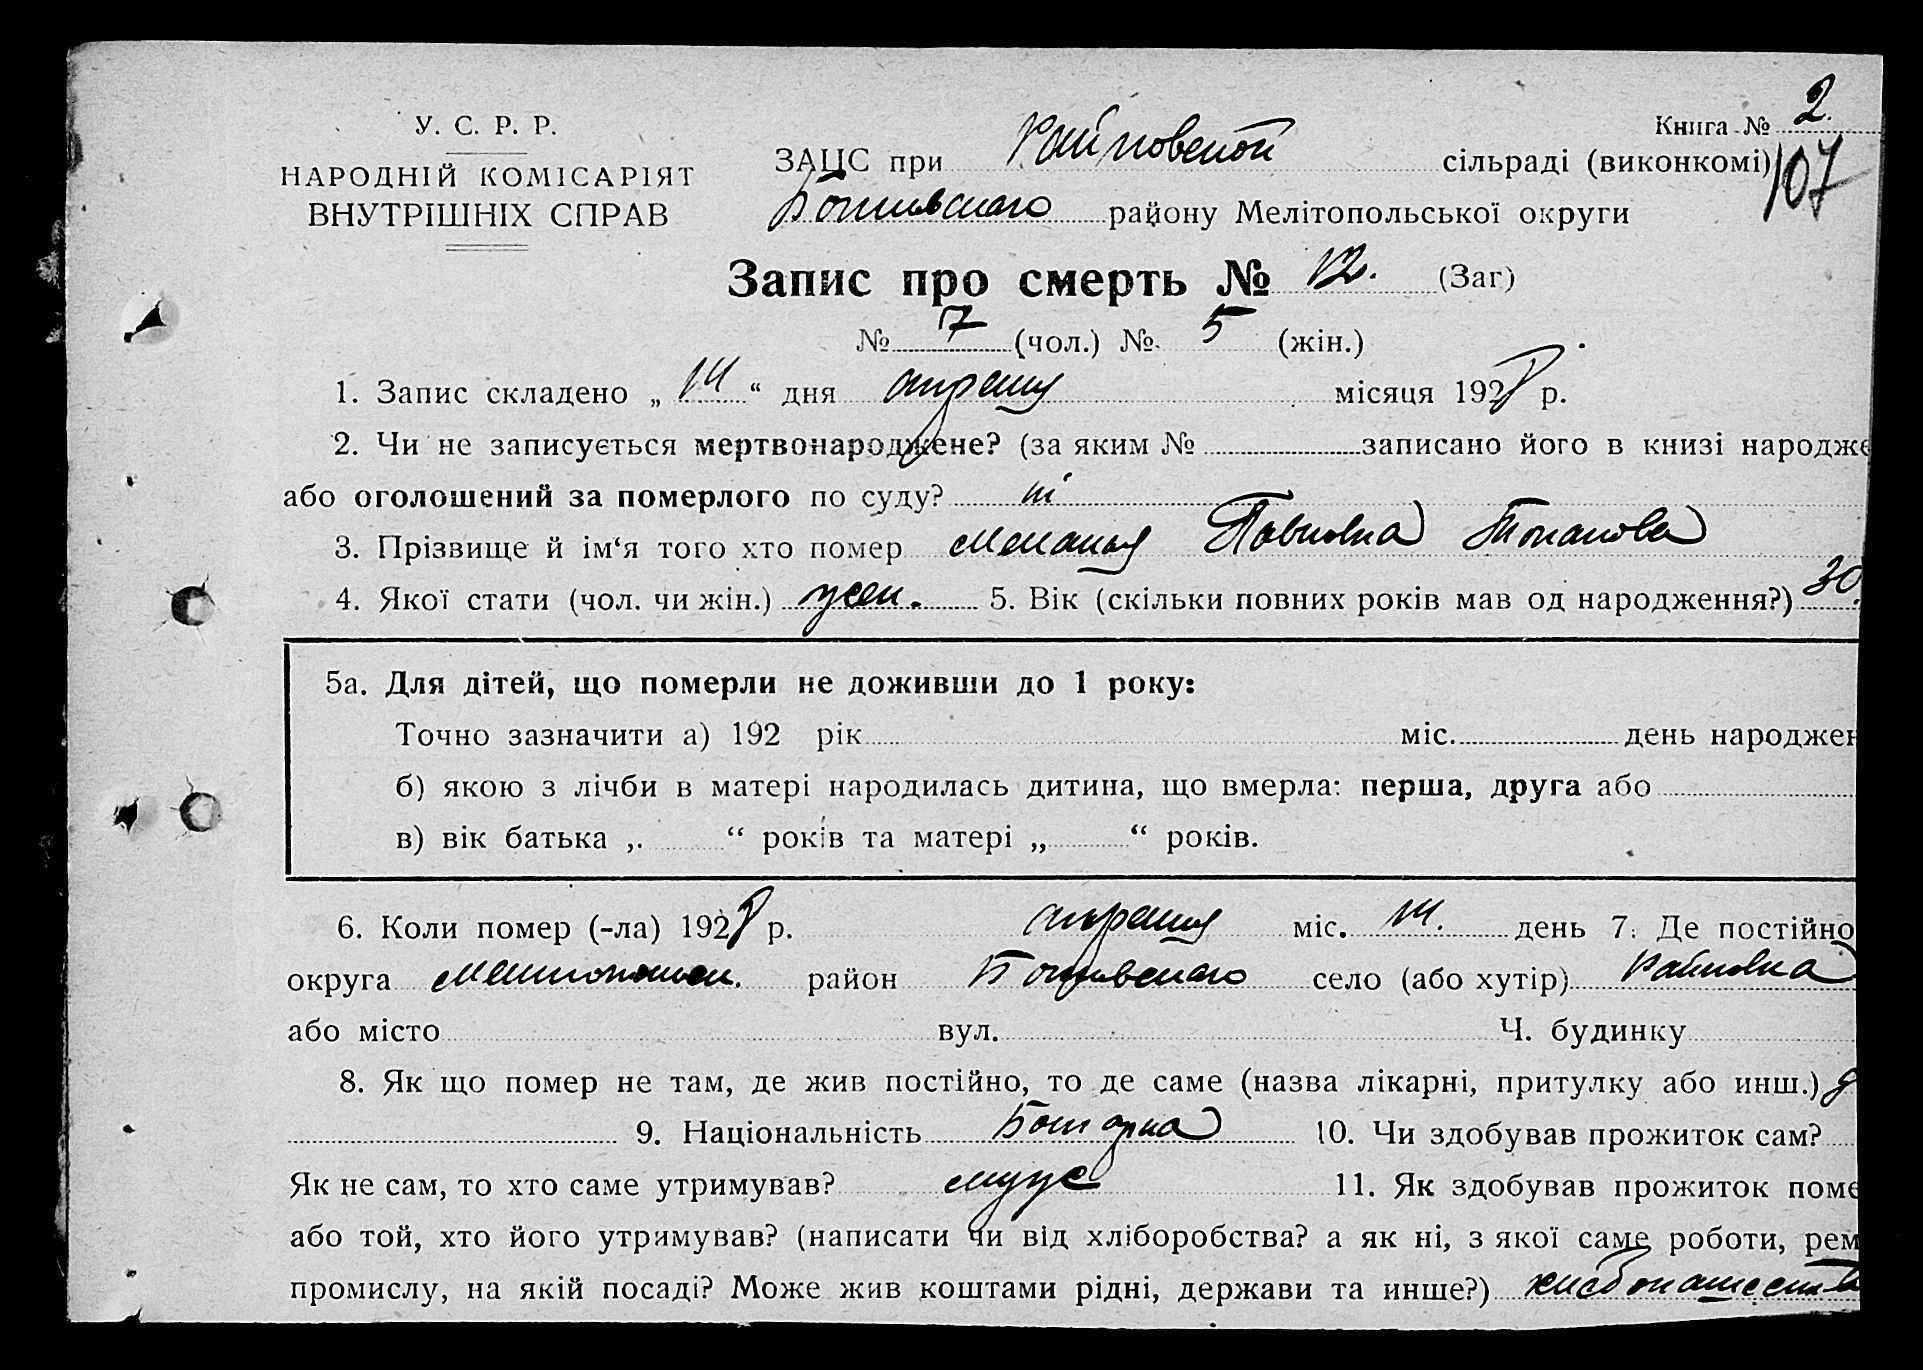 У. С. Р. Р.
НАРОДНІЙ КОМІСАРІЯТ
ВНУТРІШНІХ СПРАВ
Книга № 2.
107
ЗАЦС при Райновской сільраді (виконкомі)
Ботиевского району Мелітопольської округи
Запис про смерть № 12. (Заг)
№ 7 (чол.) № 5 (жін.)
1. Запис складено „ 14 “ дня апреля місяця 1928 р.
2. Чи не записується мертвонароджене? (за яким № записано його в книзі народже
або оголошений за померлого по суду? ні
3. Прізвище й ім‘я того хто помер Меланья Павловна Топалова
4. Якої стати (чол. чи жін.) жен. 5. Вік (скільки повних років мав од народження?) 30.
5а. Для дітей, що померли не доживши до 1 року:
Точно зазначити а) 192 рік міс. день народжен
б) якою з лічби в матері народилась дитина, що вмерла: перша, друга або
в) вік батька „ “ років та матері „ “ років.
6. Коли помер (-ла) 1928 р. апреля міс. 14. день 7. Де постійно
округа Мелитопольск. район Ботиевского село (або хутір) Райновка
або місто вул. Ч. будинку
8. Як що помер не там, де жив постійно, то де саме (назва лікарні, притулку або инш.)
9. Національність Болгарка 10. Чи здобував прожиток сам?
Як не сам, то хто саме утримував? муж 11. Як здобував прожиток поме
або той, хто його утримував? (написати чи від хліборобства? а як ні, з якої саме роботи, рем
промислу, на якій посаді? Може жив коштами рідні, держави та инше?) хлебопашеств